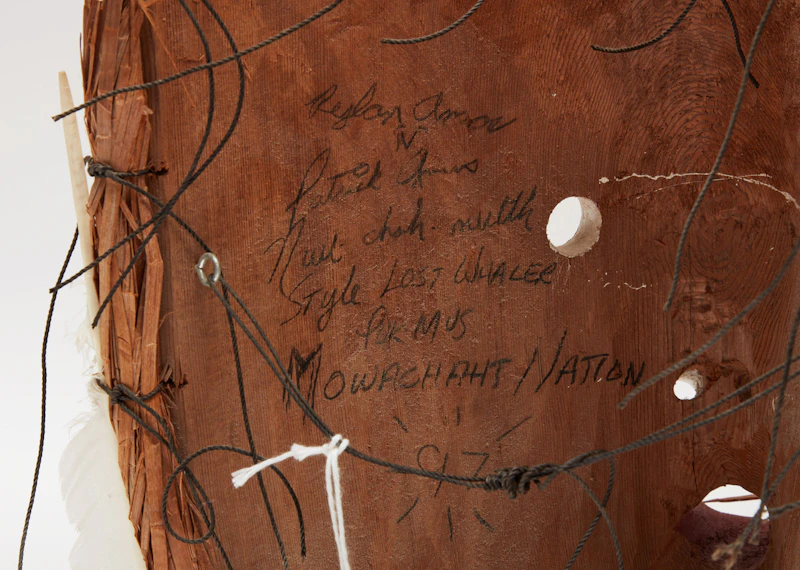 Rylan Amos
N
Patrick Amos
Nuu chah nulth
Style LOST WHALER
MOWACHAHT NATION
97